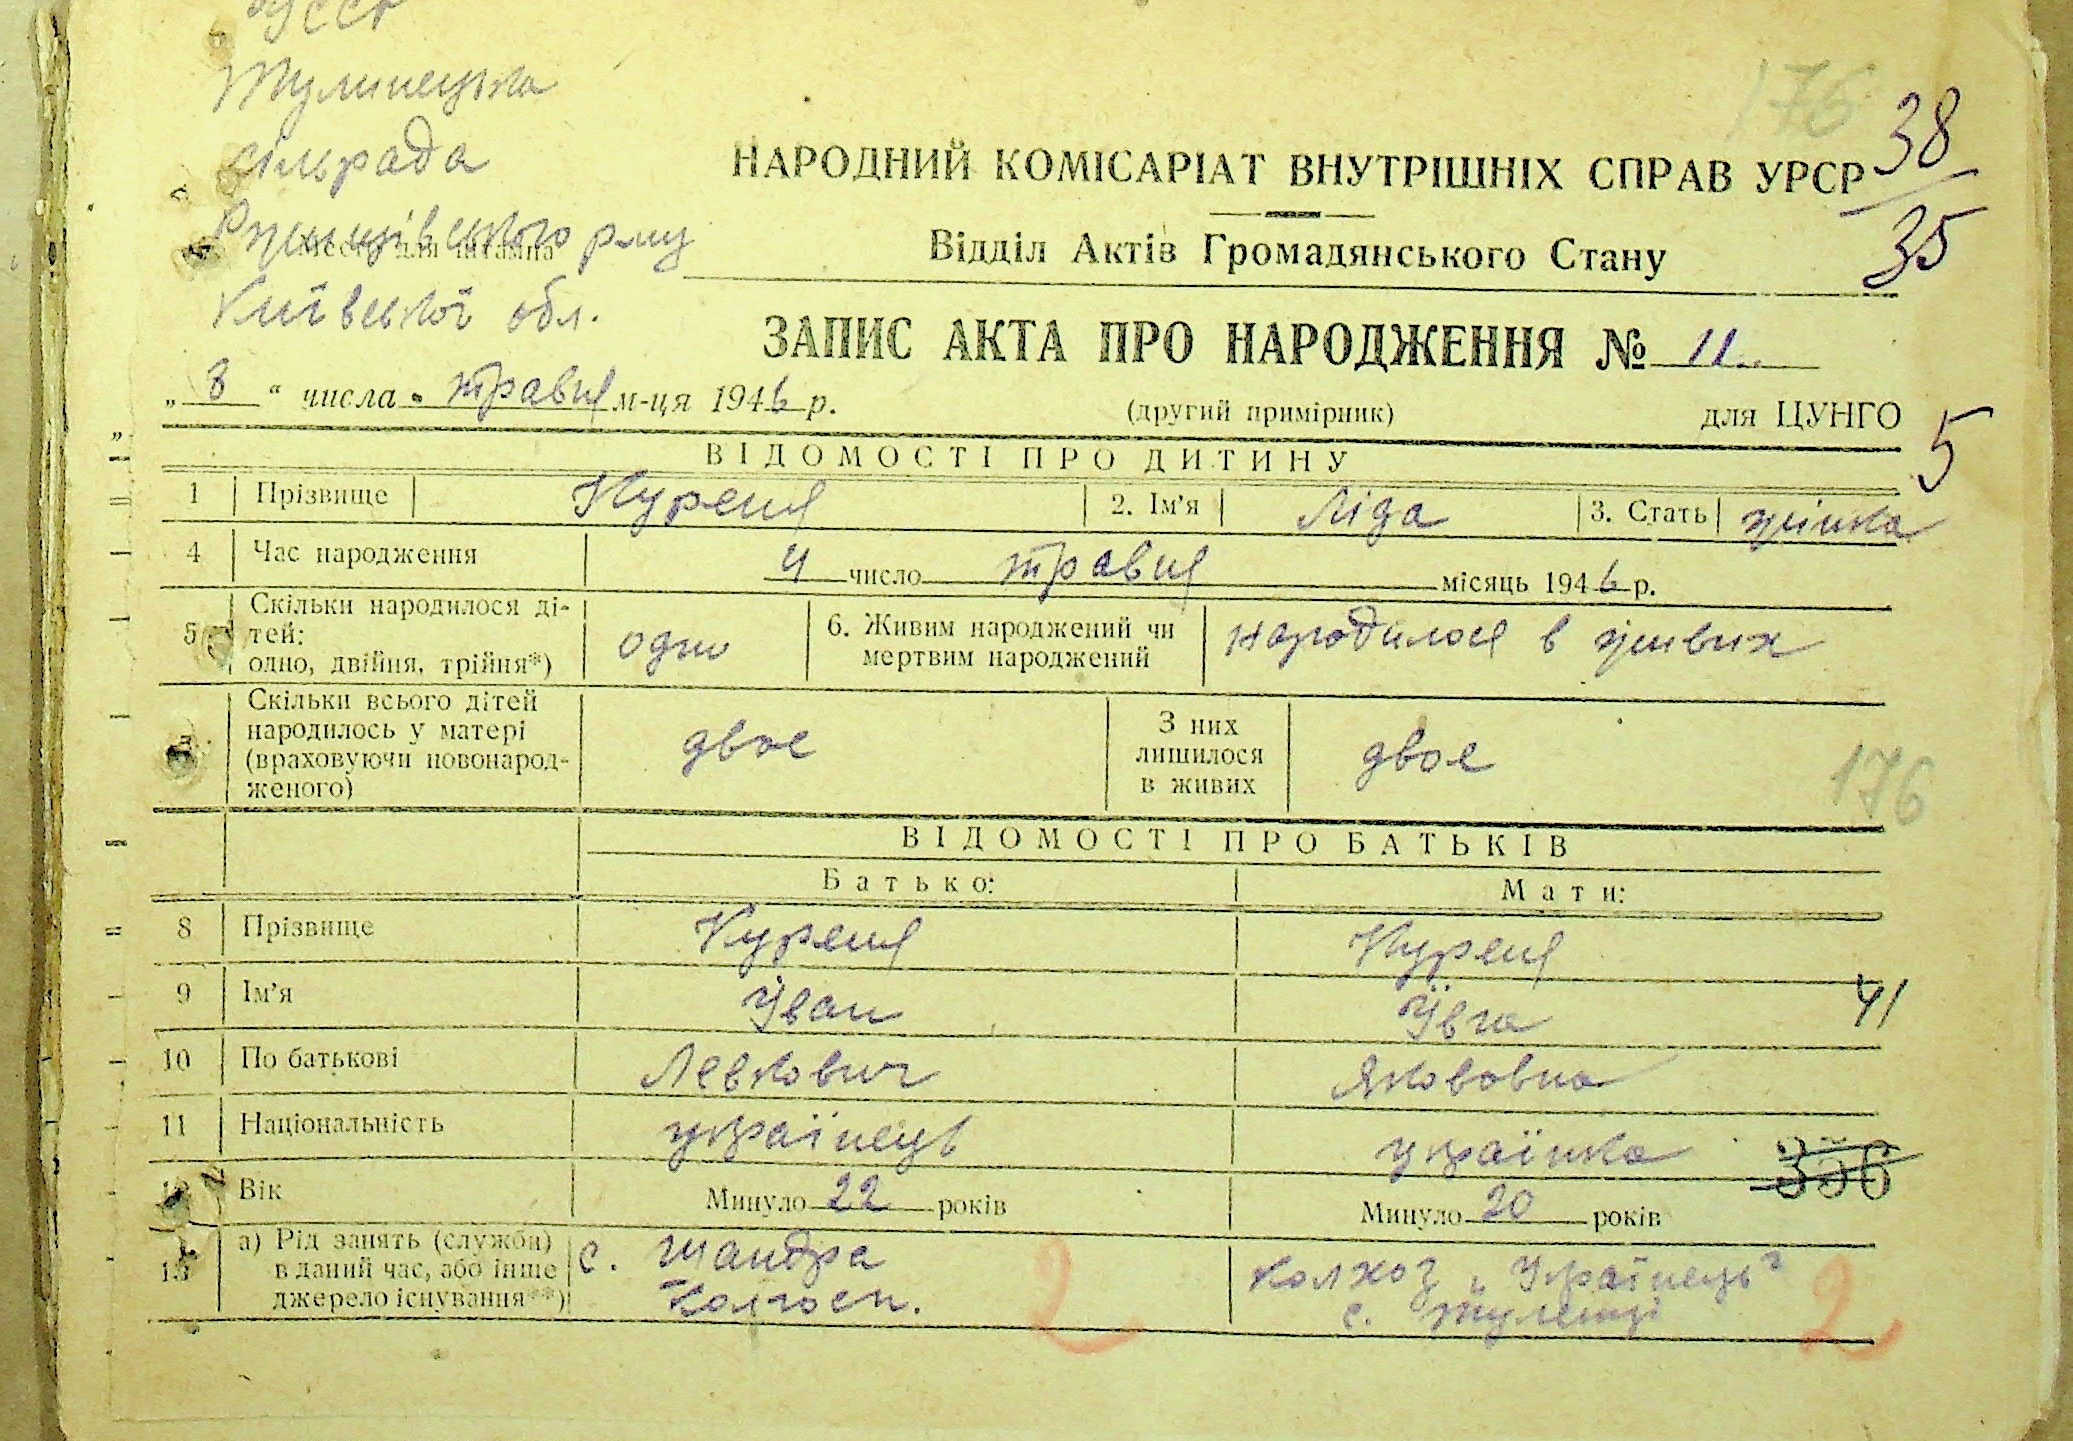 УССР
Тулинецька
сільрада
Ржищівського р-ну
Місце для штампа
Київської обл.
176
38
35
НАРОДНИЙ КОМІСАРІАТ ВНУТРІШНІХ СПРАВ УРСР
Відділ Актів Громадянського Стану
ЗАПИС АКТА ПРО НАРОДЖЕННЯ № 11
„ 8 “ числа травня м-ця 1946 р.
(другий примірник)
для ЦУНГО
5
ВІДОМОСТІ ПРО ДИТИНУ
1 Прізвище Куреня 2. Ім'я Ліда 3. Стать жінка
4 Час народження 4 число травня місяць 1946 р.
5 Скільки народилося ді-
тей:
одно, двійня, трійня*) одно
6. Живим народжений чи
мертвим народжений народилося в живих
Скільки всього дітей
народилось у матері
(враховуючи новонарод-
женого) двое
З них
лишилося
в живих двое
176
ВІДОМОСТІ ПРО БАТЬКІВ
Батько: Мати:
8 Прізвище Куреня Куреня
9 Ім'я Іван Ївга
41
10 По батькові Левкович Якововна
11 Національність українець українка
356
12 Вік Минуло 22 років Минуло 20 років
13 а) Рід занять (служби)
в даний час, або інше
джерело існування**)
с. Шандра
Колгосп.
2
Колхоз „Українець"
с. Тулинці
2